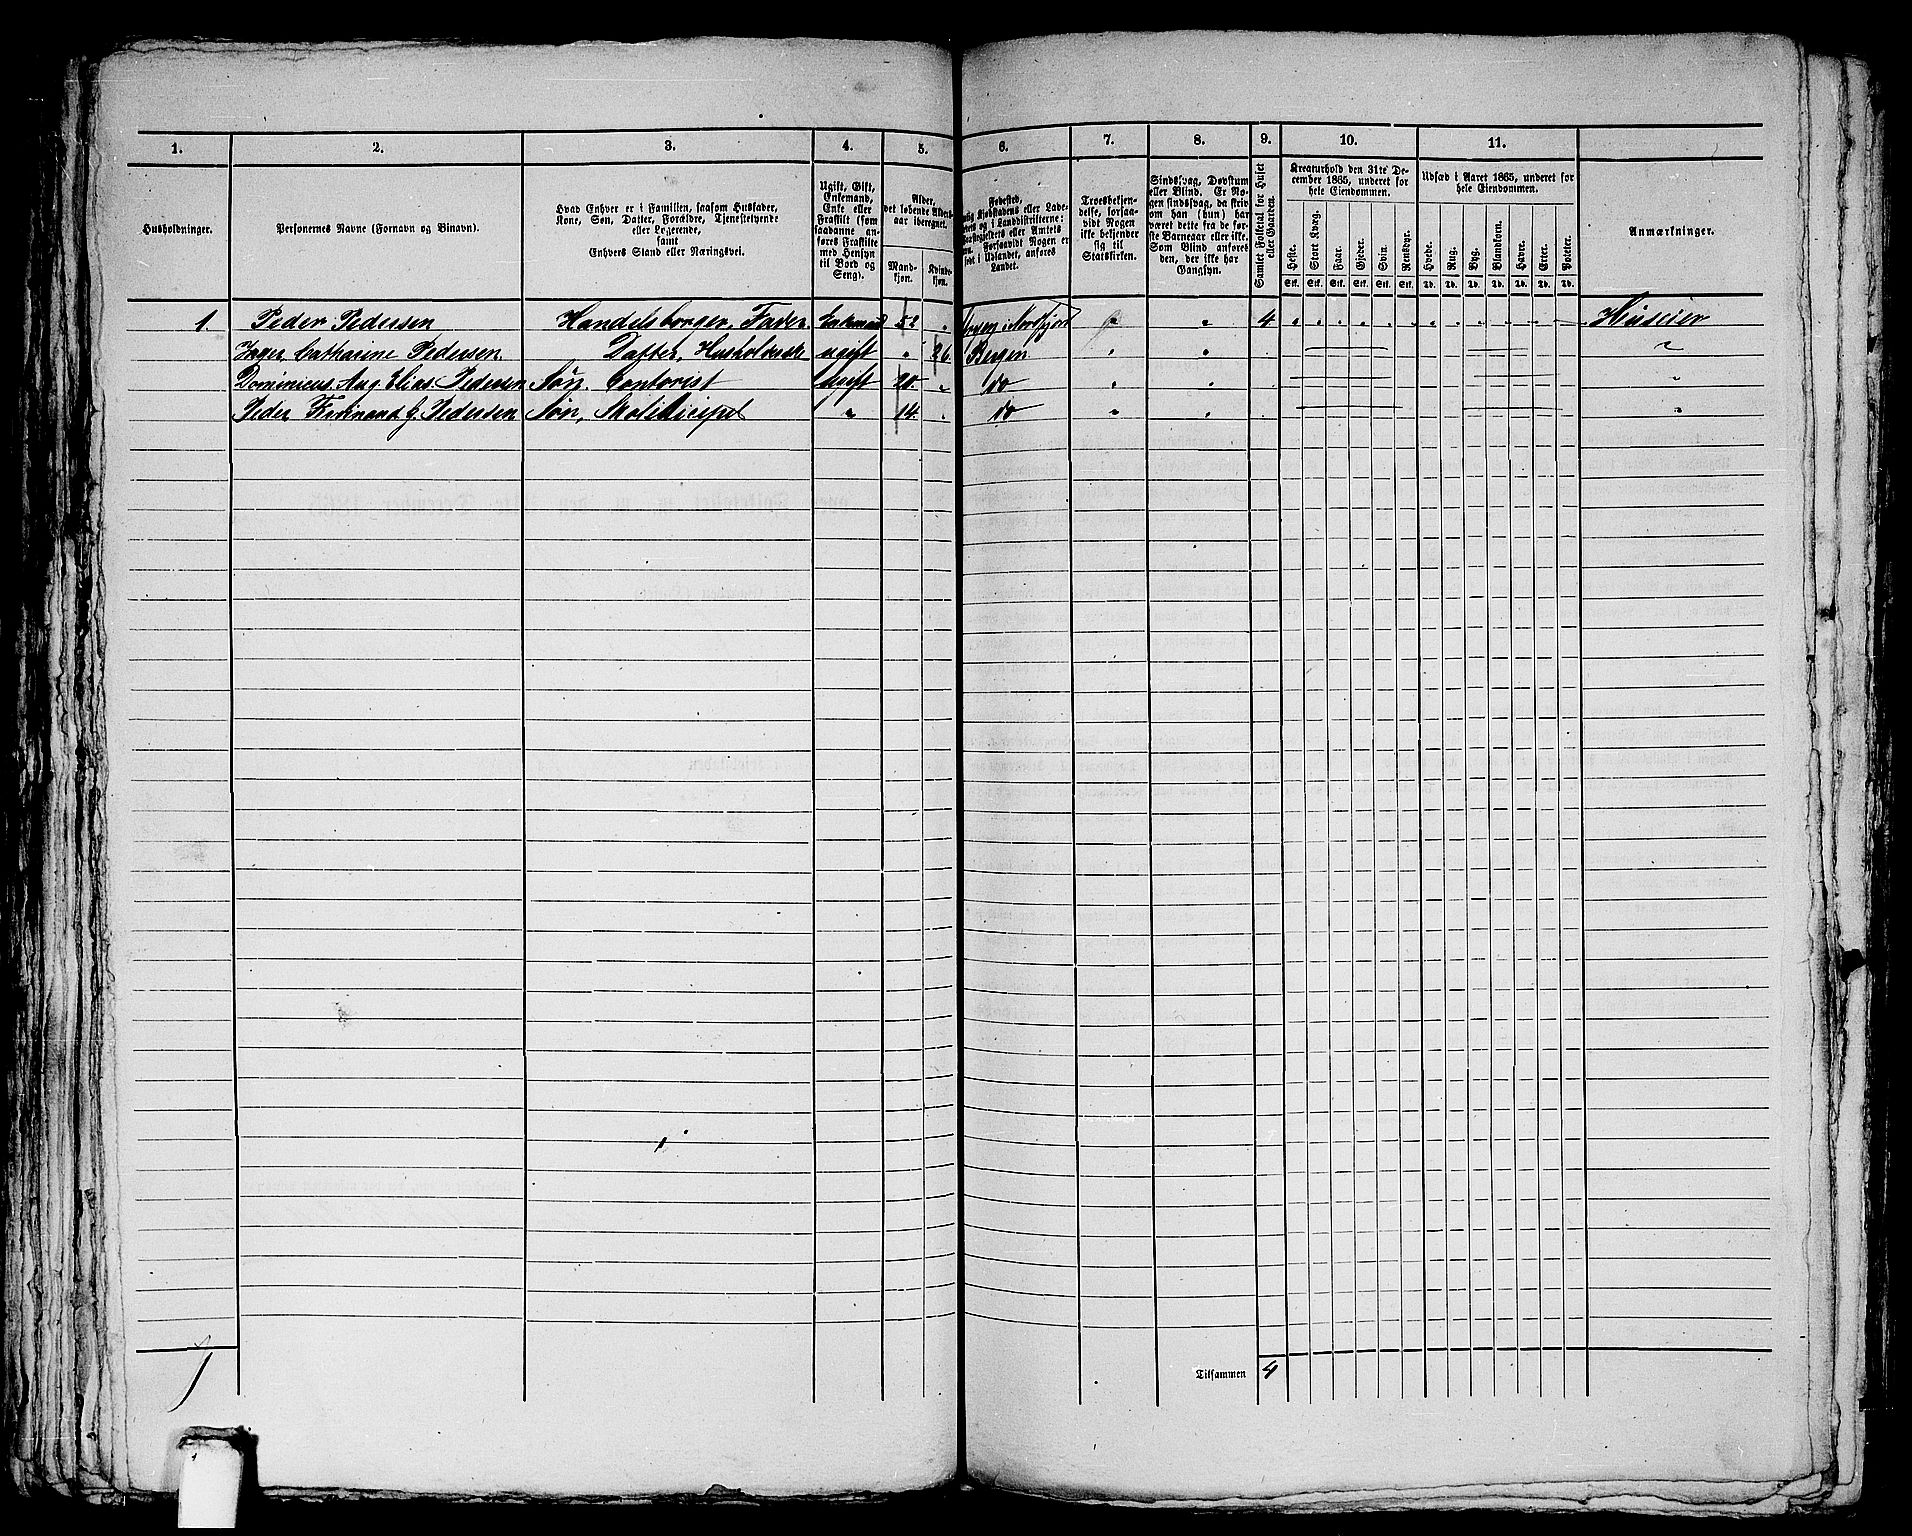 1. 2. 3. 4. 5. 6. 7. 8. 9. 10. 11.
Husholdninger.
Personernes Navne (Fornavn og Binavn).
Hvad Enhver er i Familien, saasom Husfader,
Kone, Søn, Datter, Forældre, Tjenestetyende
eller Logerende,
samt
Enhvers Stand eller Næringsvei.
Ugift, Gift,
Enkemand,
Enke eller
Fraskilt (som
saadanne an-
føres Fraskilte
med Hensyn
til Bord og
Seng).
Alder,
det løbende Alders-
aar iberegnet.
Mand-
kjøn.
Kvinde-
kjøn.
Fødested,
Kjøbstadens eller Lade-
i Landdistrikterne:
eller Amtets
Forsaavidt Nogen er
i Udlandet, anføres
Landet.
Troesbekjen-
delse, forsaa-
vidt Nogen
ikke bekjender
sig til
Statskirken.
Sindssvag, Døvstum
eller Blind. Er No-
gen sindssvag, da skriv
om han (hun) har
været dette fra de før-
ste Barneaar eller ikke.
Som Blind anføres
den, der ikke har
Gangsyn.
Samlet Folketal for Huset
eller Gaarden.
Kreaturhold den 31te De-
cember 1865, underet for
hele Eiendommen.
Heste. Stort Kvæg. Faar. Gjeder. Svin. Rensdyr.
Stk. Stk. Stk. Stk. Stk. Stk.
Udsæd i Aaret 1865, underet for
hele Eiendommen.
Hvede. Rug. Byg. Blandkorn. Havre. Erter. Poteter.
Td. Td. Td. Td. Td. Td. Td.
Anmærkninger.
1. Peder Pedersen Handelsborger, Fader. Enkemand 52 " i Nordfjord " " 4 Huseier
Inger Catharine Pedersen Datter, Husholderske ugift " 26 Bergen " " "
Dominicus Aug. Elias Pedersen Søn. Contorist Ugift 20 " do " " "
Peder Ferdinand G. Pedersen Søn, Skoledicipel " 14 " do " " "
1
Tilsammen 4